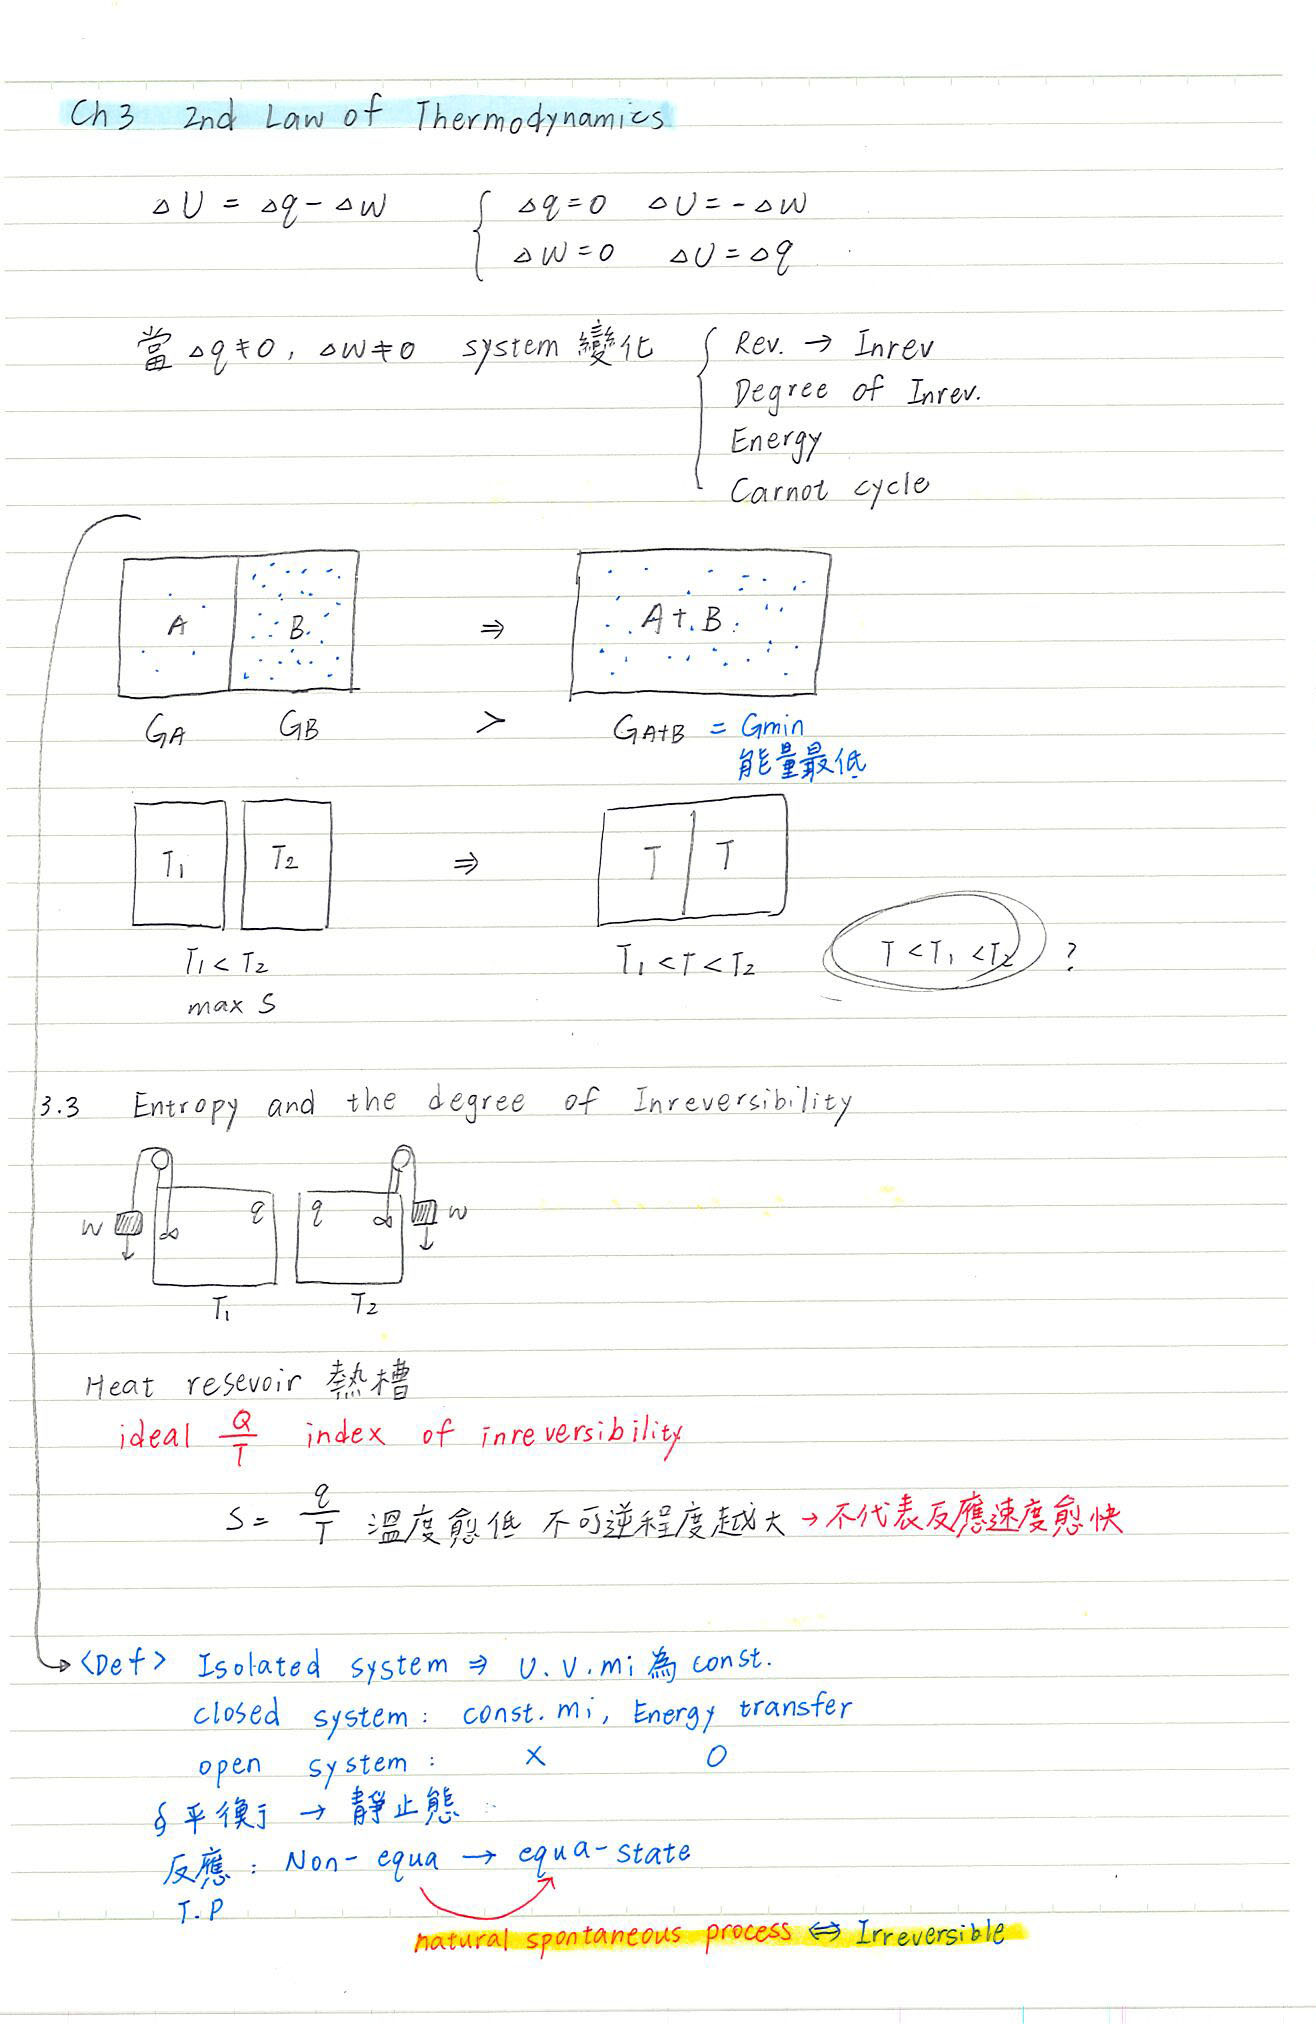 Ch3 2nd Law of Thermodynamics
△U = △q - △W { △q=0 △U = -△W
△W=0 △U=△q
當 △q≠0, △W≠0 system 變化 { Rev. → Inrev
Degree of Inrev.
Energy
Carnot cycle
A B ⇒ A+B
GA GB > GA+B = Gmin
能量最低
T1 T2 ⇒ T T
T1 < T2 T1 < T < T2 T < T1 < T2 ?
max S
3.3 Entropy and the degree of Inreversibility
W q q W
T1 T2
Heat resevoir 熱槽
ideal Q/T index of inreversibility
S = q/T 溫度愈低 不可逆程度越大 → 不代表反應速度愈快
<Def> Isolated system ⇒ U.V.mi 為 const.
closed system : const. mi, Energy transfer
open system : X O
§ 平衡 → 靜止態
反應 : Non-equa → equa-state
T.P
natural spontaneous process ⇔ Irreversible